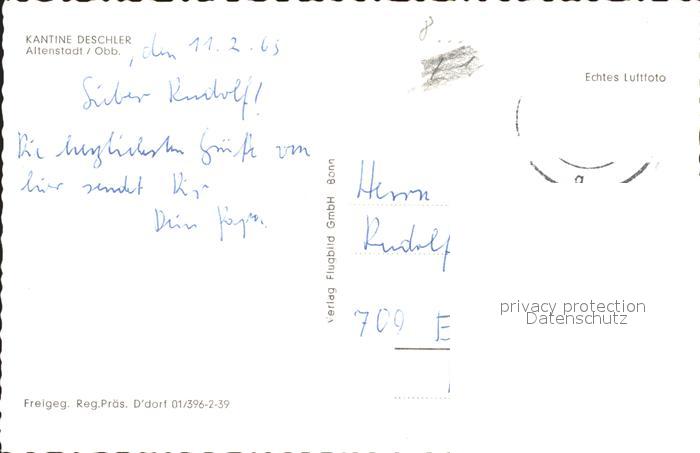 KANTINE DESCHLER
Altenstadt / Obb. , den 11.2.65
Lieber Rudolf!
Die herzlichsten Grüße von
hier sendet Dir
Dein Papa.
Verlag Flugbild GmbH Bonn
Echtes Luftfoto
Herrn
Rudolf
709 E
privacy protection
Datenschutz
Freigeg. Reg.Präs. D'dorf 01/396-2-39